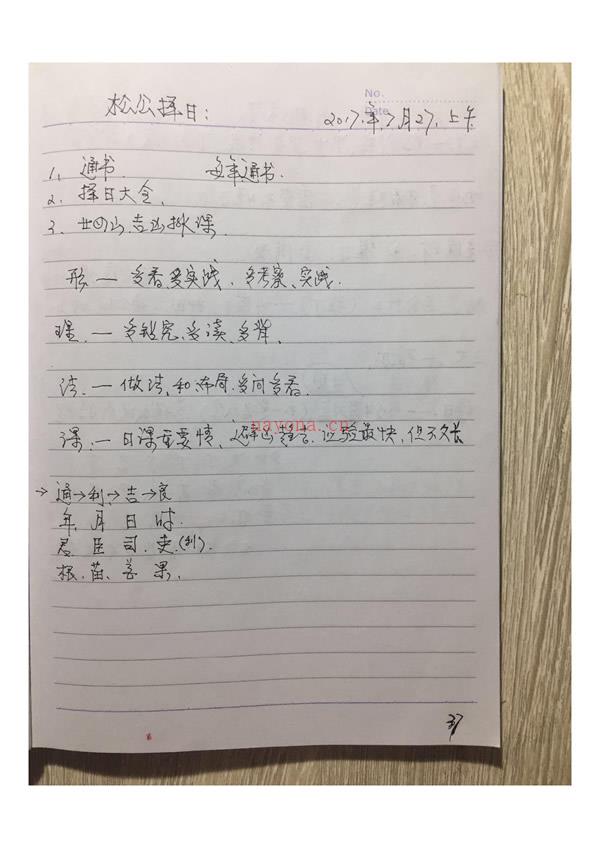 No.
Date
松公择日: 2017.年7月27.上午
1、通书. 每年通书.
2. 择日大全.
3. 廿四山.吉凶拟课.
形 — 多看多实践.多考察、实践.
理. — 多研究、多读、多背.
法. — 做法、和布局.多问多看.
课. — 日课至要情、避凶趋吉.证验最快,但不久长
nayona.cn
→通→利→吉→良
年、月 日 时.
君、臣 司.吏(利).
根.苗、花 果.
37